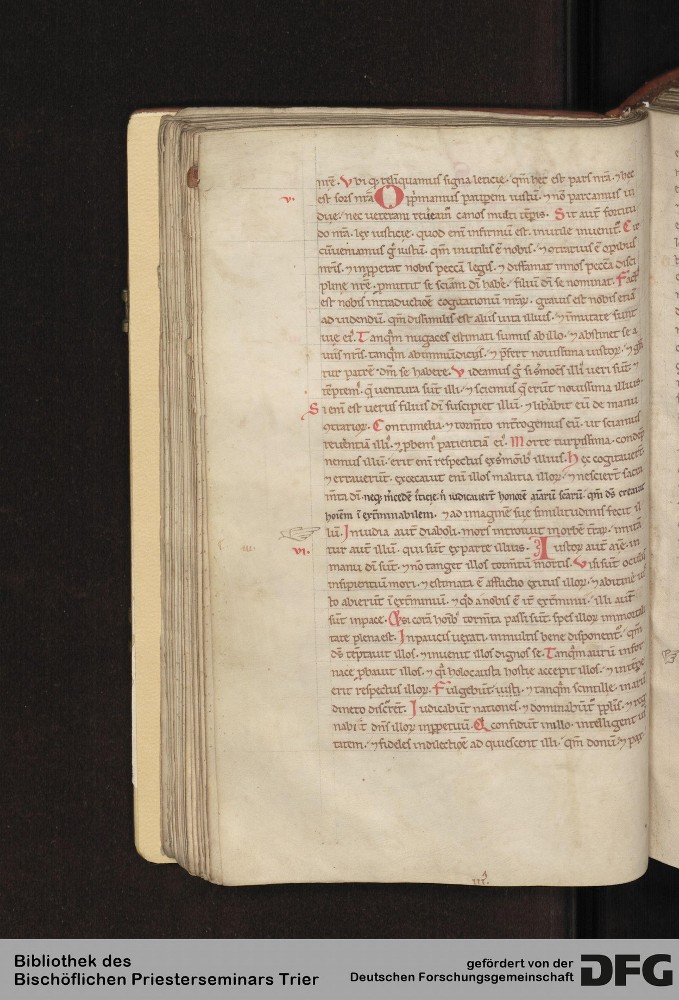 nrē. Vbiq; relinquamus signa leticię. qm̄ hec est pars nrā. ⁊ hec
v.
est sors nrā. Opprimamus paupem iustū. ⁊ nō parcamus ui
due. nec ueterani reuerami canos multi tēpis. Sit aut̄ fortitu
do nrā. lex iusticie. quod enī infirmū est. inutile inuenit̄. Cir
cūueniamus g̊ iustū. qm̄ inutilis ē nobis. ⁊ ↄtrarius ē opibus
nr̄is. ⁊ inpperat nobis peccā legis. ⁊ diffamat innos peccā disci
pline nrē. Pmittit se sciam dī habe. filiū dī se nominat. Fact
est nobis intraductioē cogitationū nrar̄. grauis est nobis etiā
ad uidendū. qm̄ dissimilis est aliis uita illius. ⁊ īmutate sunt
uie ei. Tanqm̄ nugaces estimati sumus ab illo. ⁊ abstinet se a
uiis nr̄is. tanqm̄ abinmūdiciis. ⁊ p̄fert nouissima iustor̄. ⁊ gl̄a
tur patrē dm̄ se habere. Videamus g̊ si s̄moēs illi ueri sūt. ⁊
tēptem. q̄ uentura sūt illi. ⁊ sciemus q̄ erūt nouissima illius.
Si enī est uerus filius dī suscipiet illū. ⁊ libabit eū de manu
ↄtrarior̄. Contumelia. ⁊ tormēto int̄rogemus eū. ut sciamus
reuerentiā illi. ⁊ pbem patientiā ei. Morte turpissima. condēp
nemus illū. erit enī respectus exs̄monib illius. Hec cogitauert̄
⁊ errauerūt. excecauit enī illos malitia illor̄. ⁊ nesciert̄ sacra
mīta dī. neq; m̄cedē sperauert̄ iusticie. n̄ iudicauert̄ honorē aīarū scārū. qm̄ ds̄ creauit
hoīem ī ext̄minabilem. ⁊ ad imaginē sue similitudinis fecit il
lū. Inuidia aut̄ diaboli. mors introiuit inorbē trar̄. imitā
vi.
tur aut̄ illū. qui sūt exparte illius. Iustor̄ aut̄ aīe. in
manu dī sunt. ⁊ nō tanget illos tormtū mortis. Visi sūt oculis
insipientiū mori. ⁊ estimata ē afflictio exitus illor̄. ⁊ abitinē
to abierūt ī ext̄miniū. ⁊ qd̄ a nobis ē it̄ ext̄minii. illi aut̄
sūt inpace. Qsi corā hoīb tormīta passi sūt. spes illor̄ immortali
tate plena est. Inpaucis uexati. inmultis bene disponent̄. qm̄
ds̄ tēptauit illos. ⁊ inuenit illos dignos se. Tanqm̄ aurū infor
nace pbauit illos. ⁊ q̄i holocausti hostiē accepit illos. ⁊ intēpe
erit respectus illor̄. Fulgebūt iusti. ⁊ tanqm̄ scintille inarū
dineto discr̄ent. Iudicabūt nationes. ⁊ dominabūt̄ pplis. ⁊ reg
nabit dn̄s illor̄ inppetuū. Q confidunt inillo. intelligent ui
tatem. ⁊ fideles indilectiōe ad quiescent illi. qm̄ donū ⁊ pax
Bibliothek des
Bischöflichen Priesterseminars Trier
gefördert von der
Deutschen Forschungsgemeinschaft
DFG